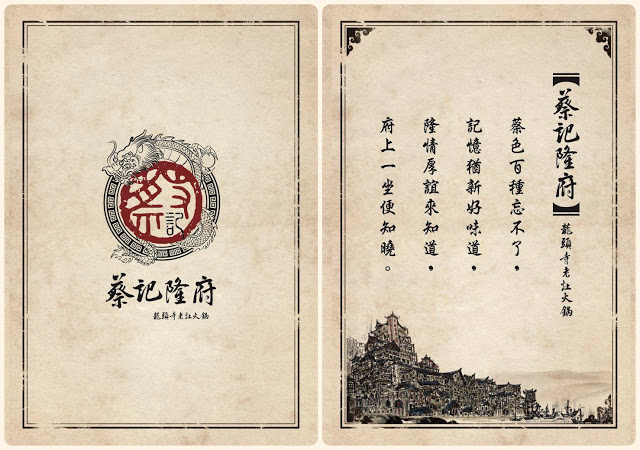 蔡
記
蔡記隆府
龍頭寺老灶火鍋
【蔡記隆府】
龍頭寺老灶火鍋
蔡色百種忘不了，
記憶猶新好味道，
隆情厚誼來知道，
府上一坐便知曉。